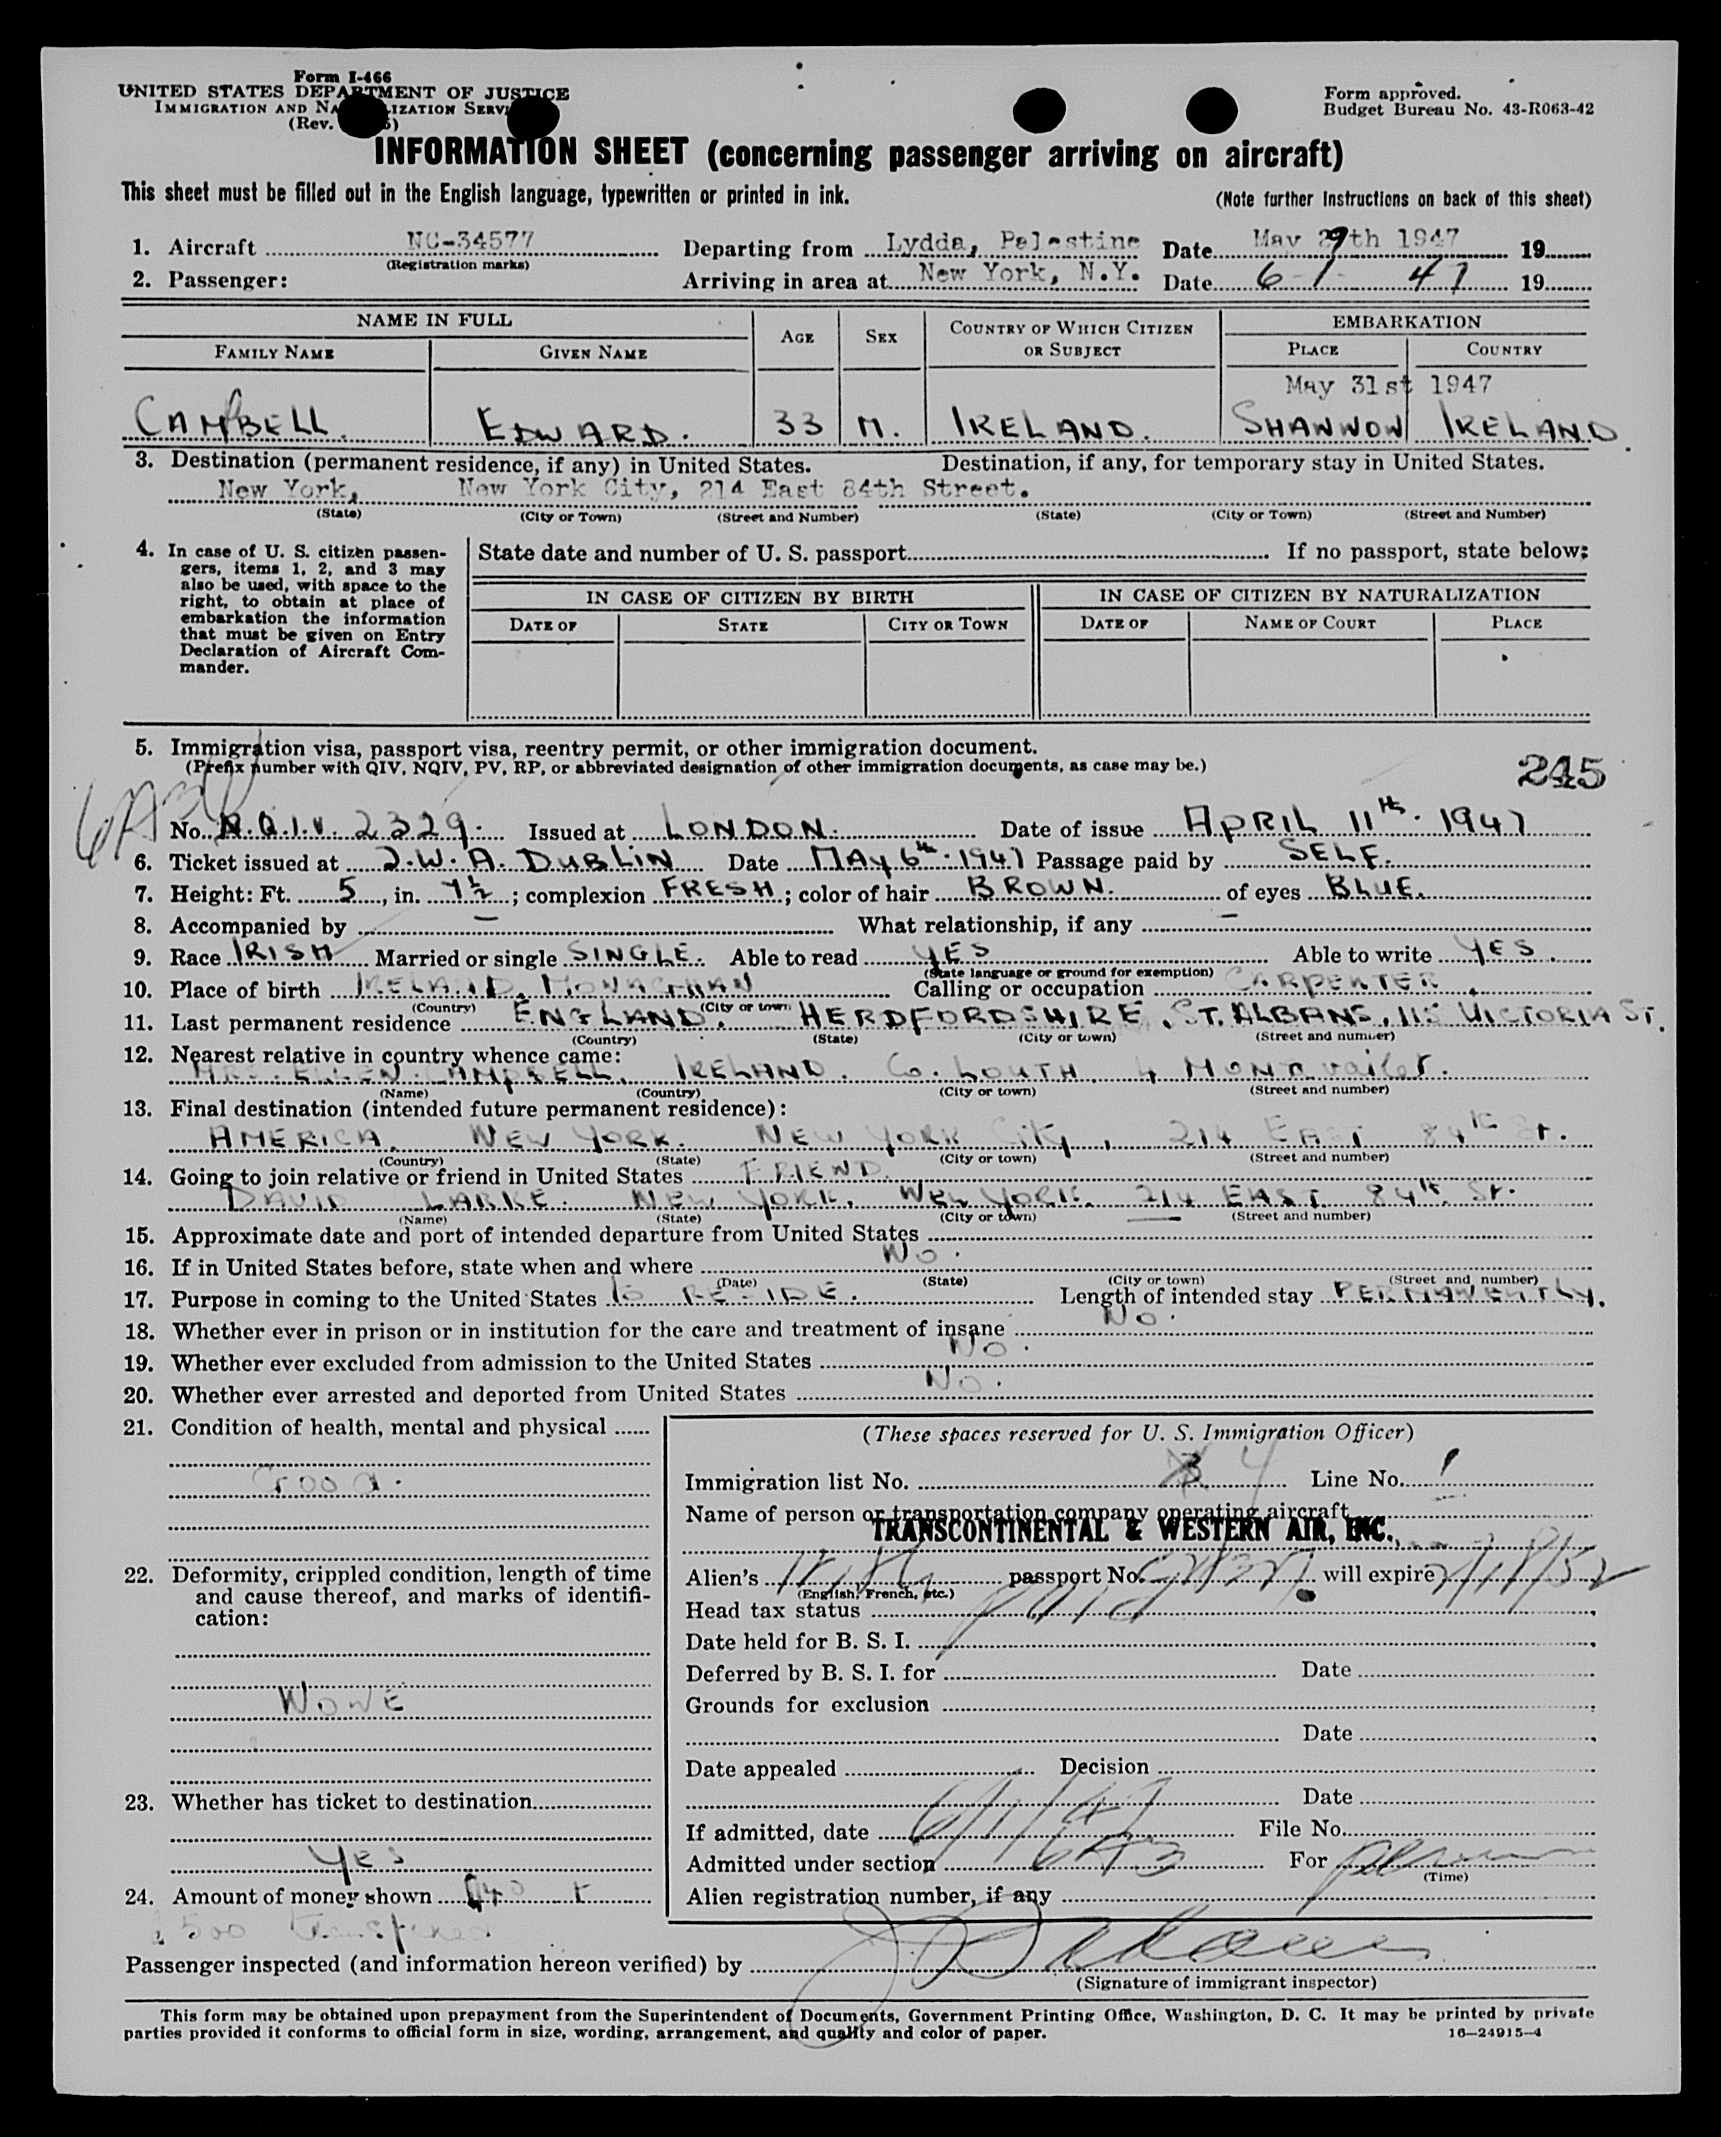 Form I-466
UNITED STATES DEPARTMENT OF JUSTICE
IMMIGRATION AND NATURALIZATION SERVICE
(Rev.
Form approved.
Budget Bureau No. 43-R063-42
INFORMATION SHEET (concerning passenger arriving on aircraft)
This sheet must be filled out in the English language, typewritten or printed in ink. (Note further instructions on back of this sheet)
1. Aircraft NC-34577 Departing from Lydda, Palestine Date May 29th 1947 19
(Registration marks)
2. Passenger: Arriving in area at New York, N.Y. Date 6-1-47 19
NAME IN FULL AGE SEX COUNTRY OF WHICH CITIZEN OR SUBJECT EMBARKATION
FAMILY NAME GIVEN NAME PLACE COUNTRY
May 31st 1947
CAMPBELL. EDWARD. 33 M. IRELAND. SHANNON IRELAND.
3. Destination (permanent residence, if any) in United States. Destination, if any, for temporary stay in United States.
New York, New York City, 214 East 84th Street.
(State) (City or Town) (Street and Number) (State) (City or Town) (Street and Number)
4. In case of U. S. citizen passengers, items 1, 2, and 3 may also be used, with space to the right, to obtain at place of embarkation the information that must be given on Entry Declaration of Aircraft Commander.
State date and number of U. S. passport If no passport, state below:
IN CASE OF CITIZEN BY BIRTH IN CASE OF CITIZEN BY NATURALIZATION
DATE OF STATE CITY OR TOWN DATE OF NAME OF COURT PLACE
5. Immigration visa, passport visa, reentry permit, or other immigration document.
(Prefix number with QIV, NQIV, PV, RP, or abbreviated designation of other immigration documents, as case may be.)
245
6A3
No. N.Q.I.V. 2329. Issued at LONDON. Date of issue APRIL 11th. 1947
6. Ticket issued at T.W.A. DUBLIN Date MAY 6th. 1947 Passage paid by SELF.
7. Height: Ft. 5, in. 7½; complexion FRESH; color of hair BROWN. of eyes BLUE.
8. Accompanied by — What relationship, if any —
9. Race IRISH Married or single SINGLE. Able to read YES Able to write YES.
(State language or ground for exemption)
10. Place of birth IRELAND, MONAGHAN Calling or occupation CARPENTER.
(Country) (City or town)
11. Last permanent residence ENGLAND. HERDFORDSHIRE, ST. ALBANS, 115 VICTORIA ST.
(Country) (State) (City or town) (Street and number)
12. Nearest relative in country whence came:
MRS. ELLEN CAMPBELL. IRELAND. Co. LOUTH, 4
(Name) (Country) (City or town) (Street and number)
13. Final destination (intended future permanent residence):
AMERICA, NEW YORK. NEW YORK City, 214 EAST 84th St.
(Country) (State) (City or town) (Street and number)
14. Going to join relative or friend in United States FRIEND.
DAVID LARKE. NEW YORK, NEW YORK. 214 EAST 84th St.
(Name) (State) (City or town) (Street and number)
15. Approximate date and port of intended departure from United States
16. If in United States before, state when and where No.
(Date) (State) (City or town) (Street and number)
17. Purpose in coming to the United States To RESIDE. Length of intended stay PERMANENTLY.
18. Whether ever in prison or in institution for the care and treatment of insane No.
19. Whether ever excluded from admission to the United States No.
20. Whether ever arrested and deported from United States No.
21. Condition of health, mental and physical
Good.
22. Deformity, crippled condition, length of time and cause thereof, and marks of identification:
NONE
23. Whether has ticket to destination
YES
24. Amount of money shown £40
500
(These spaces reserved for U. S. Immigration Officer)
Immigration list No. 4 Line No. 1
Name of person or transportation company operating aircraft
TRANSCONTINENTAL & WESTERN AIR, INC.
Alien's Irish passport No. will expire /18/52
(English, French, etc.)
Head tax status paid
Date held for B. S. I.
Deferred by B. S. I. for Date
Grounds for exclusion
Date
Date appealed Decision
Date
If admitted, date 6/1/47 File No.
Admitted under section 6A3 For perm
(Time)
Alien registration number, if any
Passenger inspected (and information hereon verified) by
(Signature of immigrant inspector)
This form may be obtained upon prepayment from the Superintendent of Documents, Government Printing Office, Washington, D. C. It may be printed by private
parties provided it conforms to official form in size, wording, arrangement, and quality and color of paper. 16—24915-4